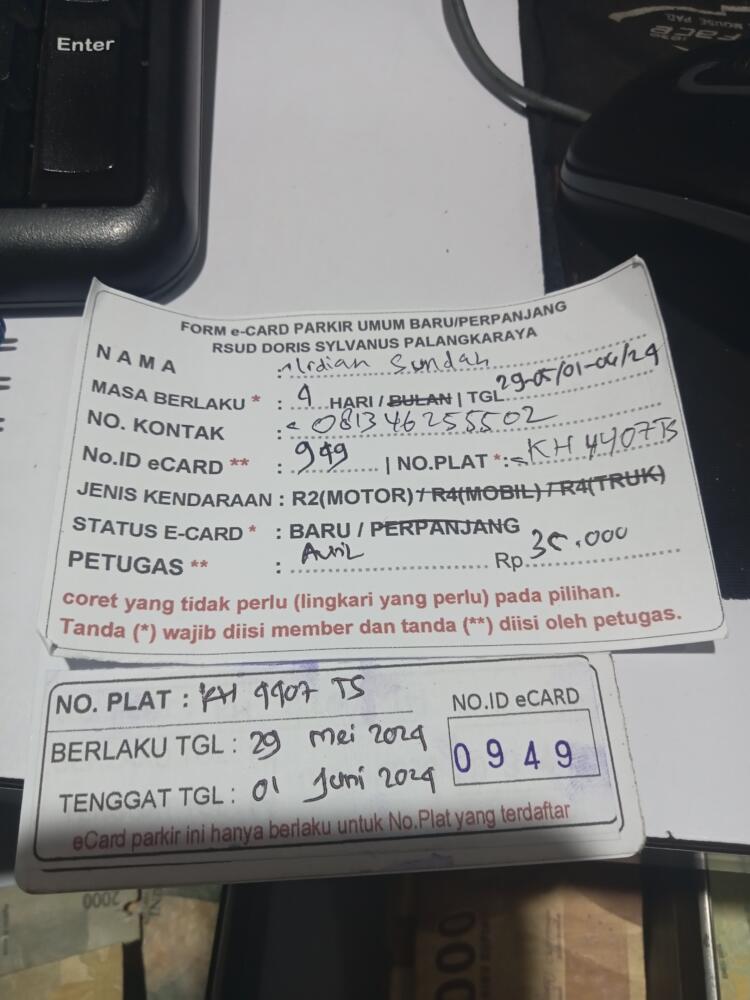 Enter
MOUSE PAD
FORM e-CARD PARKIR UMUM BARU/PERPANJANG
RSUD DORIS SYLVANUS PALANGKARAYA
NAMA : Ardian Sundah
MASA BERLAKU * : 4 HARI / BULAN | TGL 29-05/01-06/24
NO. KONTAK : 081346255502
No.ID eCARD ** : 949 | NO.PLAT *: KH 4407 TS
JENIS KENDARAAN : R2(MOTOR) / R4(MOBIL) / R4(TRUK)
STATUS E-CARD * : BARU / PERPANJANG
PETUGAS ** : Avril Rp. 30.000
coret yang tidak perlu (lingkari yang perlu) pada pilihan.
Tanda (*) wajib diisi member dan tanda (**) diisi oleh petugas.
NO. PLAT : KH 4407 TS
NO.ID eCARD
BERLAKU TGL : 29 Mei 2024
0949
TENGGAT TGL : 01 Juni 2024
eCard parkir ini hanya berlaku untuk No.Plat yang terdaftar
2000